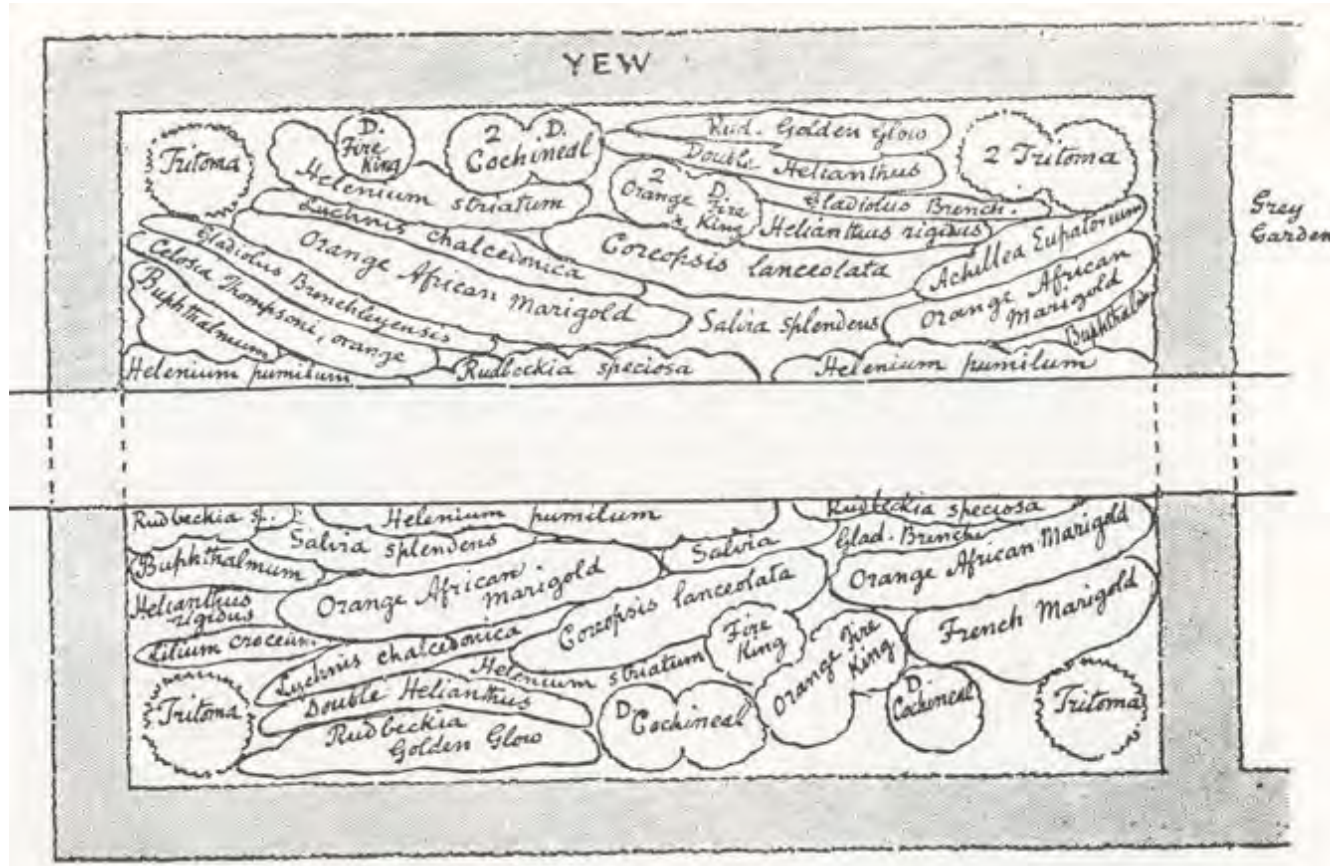 YEW
Tritoma
D.
Fire
King
2 D.
Cochineal
Rud. Golden Glow
Double Helianthus
2 Tritoma
Helenium striatum
2
Orange D.
Fire
King
Gladiolus Brench.
Helianthus rigidus
Grey
Garden
Lychnis chalcedonica
Coreopsis lanceolata
Achillea Eupatorium
Gladiolus Brenchleyensis
Orange African
Marigold
Orange African
Marigold
Celosia Thompsoni, orange
Salvia splendens
Buphthalmum
Buphthalm
Helenium pumilum
Rudbeckia speciosa
Helenium pumilum
Rudbeckia sp.
Helenium pumilum
Rudbeckia speciosa
Salvia splendens
Salvia
Glad. Brench
Buphthalmum
Orange African
Marigold
Orange African Marigold
Helianthus
rigidus
Coreopsis lanceolata
French Marigold
Lilium croceum.
Lychnis chalcedonica
Helenium striatum
Fire
King
Orange Fire
King
Tritoma
Double Helianthus
D.
Cochineal
D.
Cochineal
Tritoma
Rudbeckia
Golden Glow